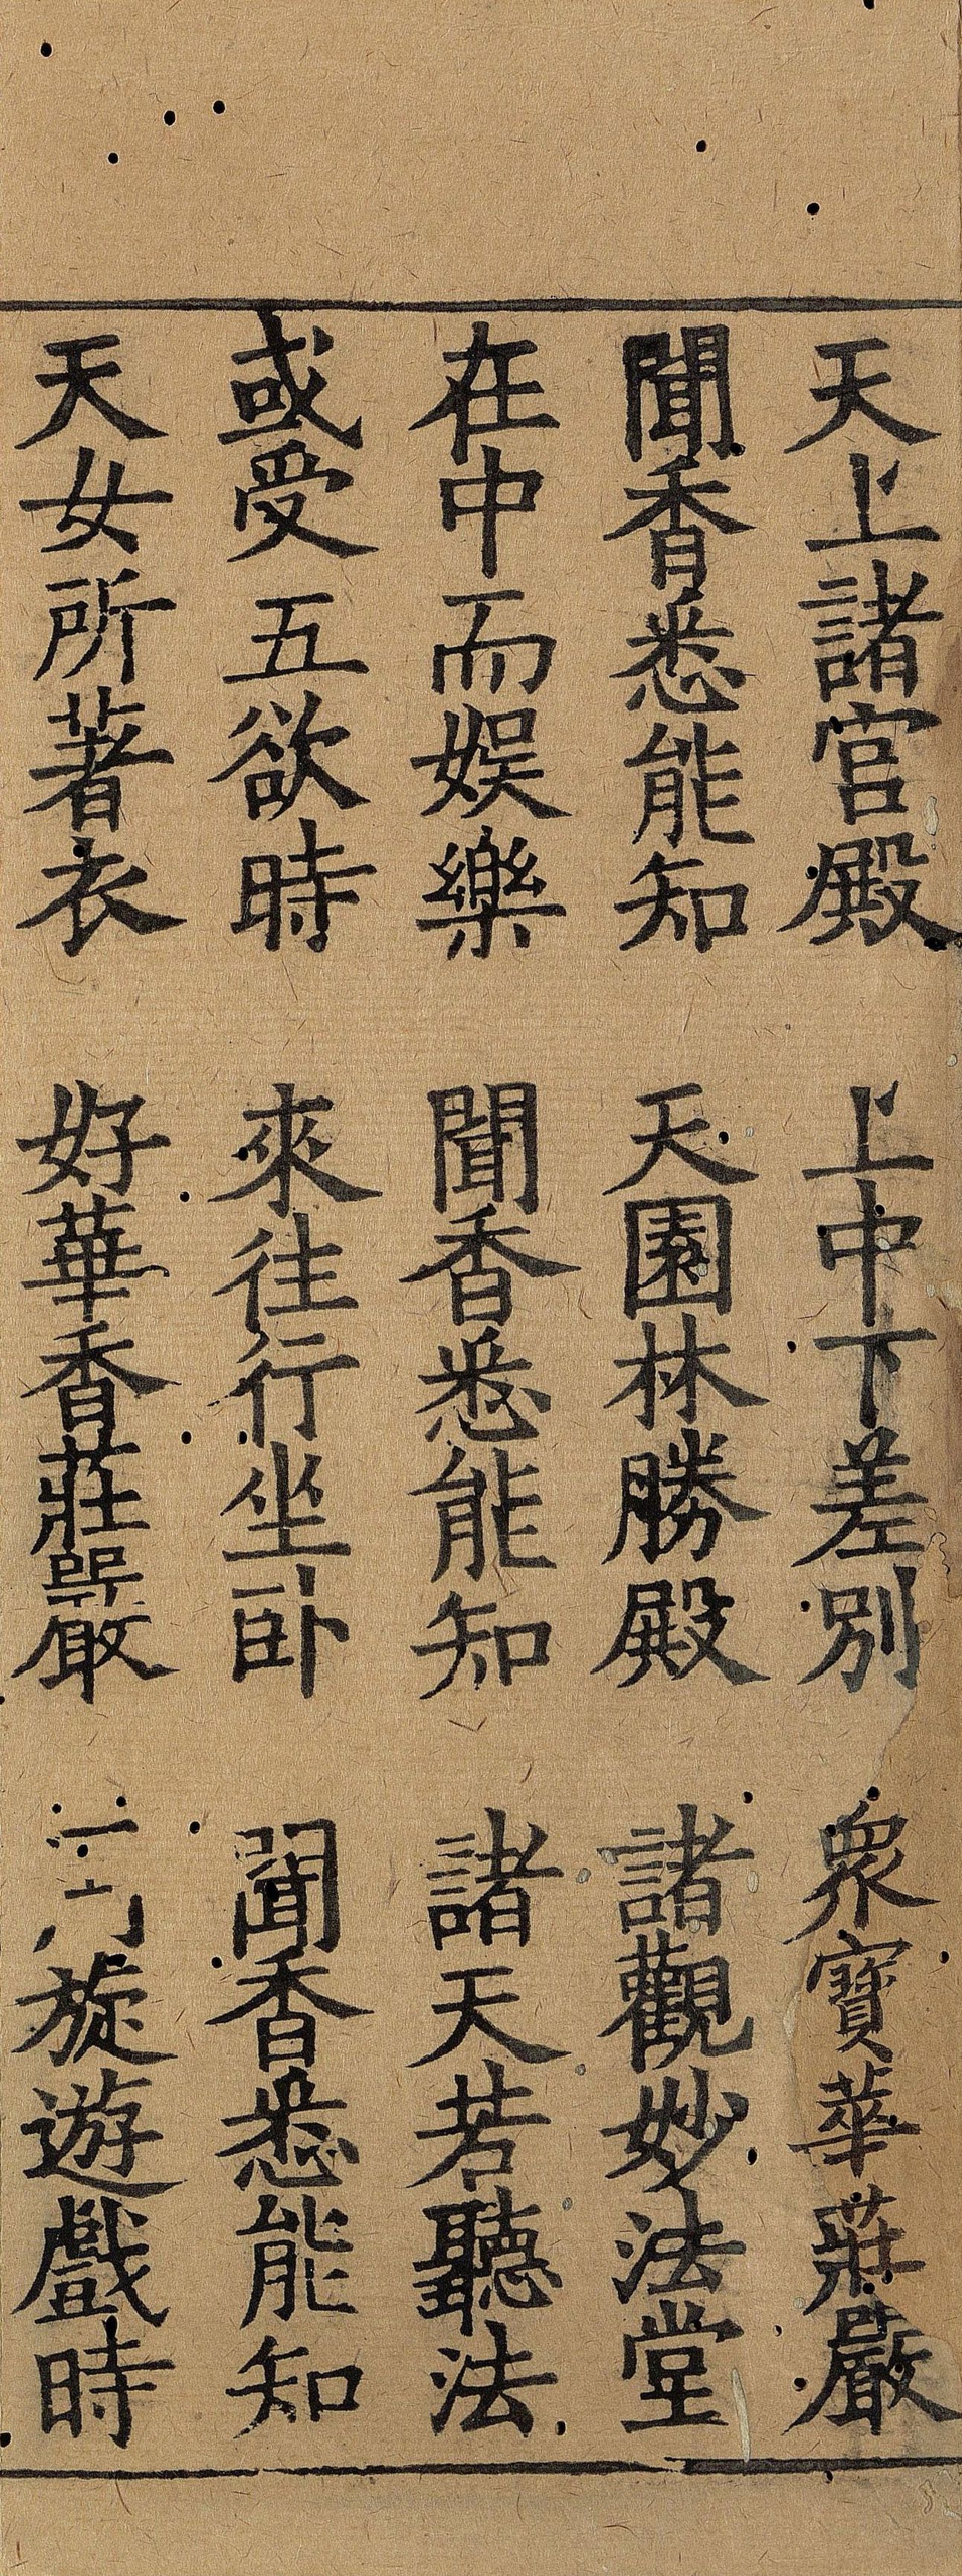 天上諸宮殿　上中下差別　衆寶華莊嚴
聞香悉能知　天園林勝殿　諸觀妙法堂
在中而娛樂　聞香悉能知　諸天若聽法
或受五欲時　來往行坐臥　聞香悉能知
天女所著衣　好華香莊嚴　旋遊戲時